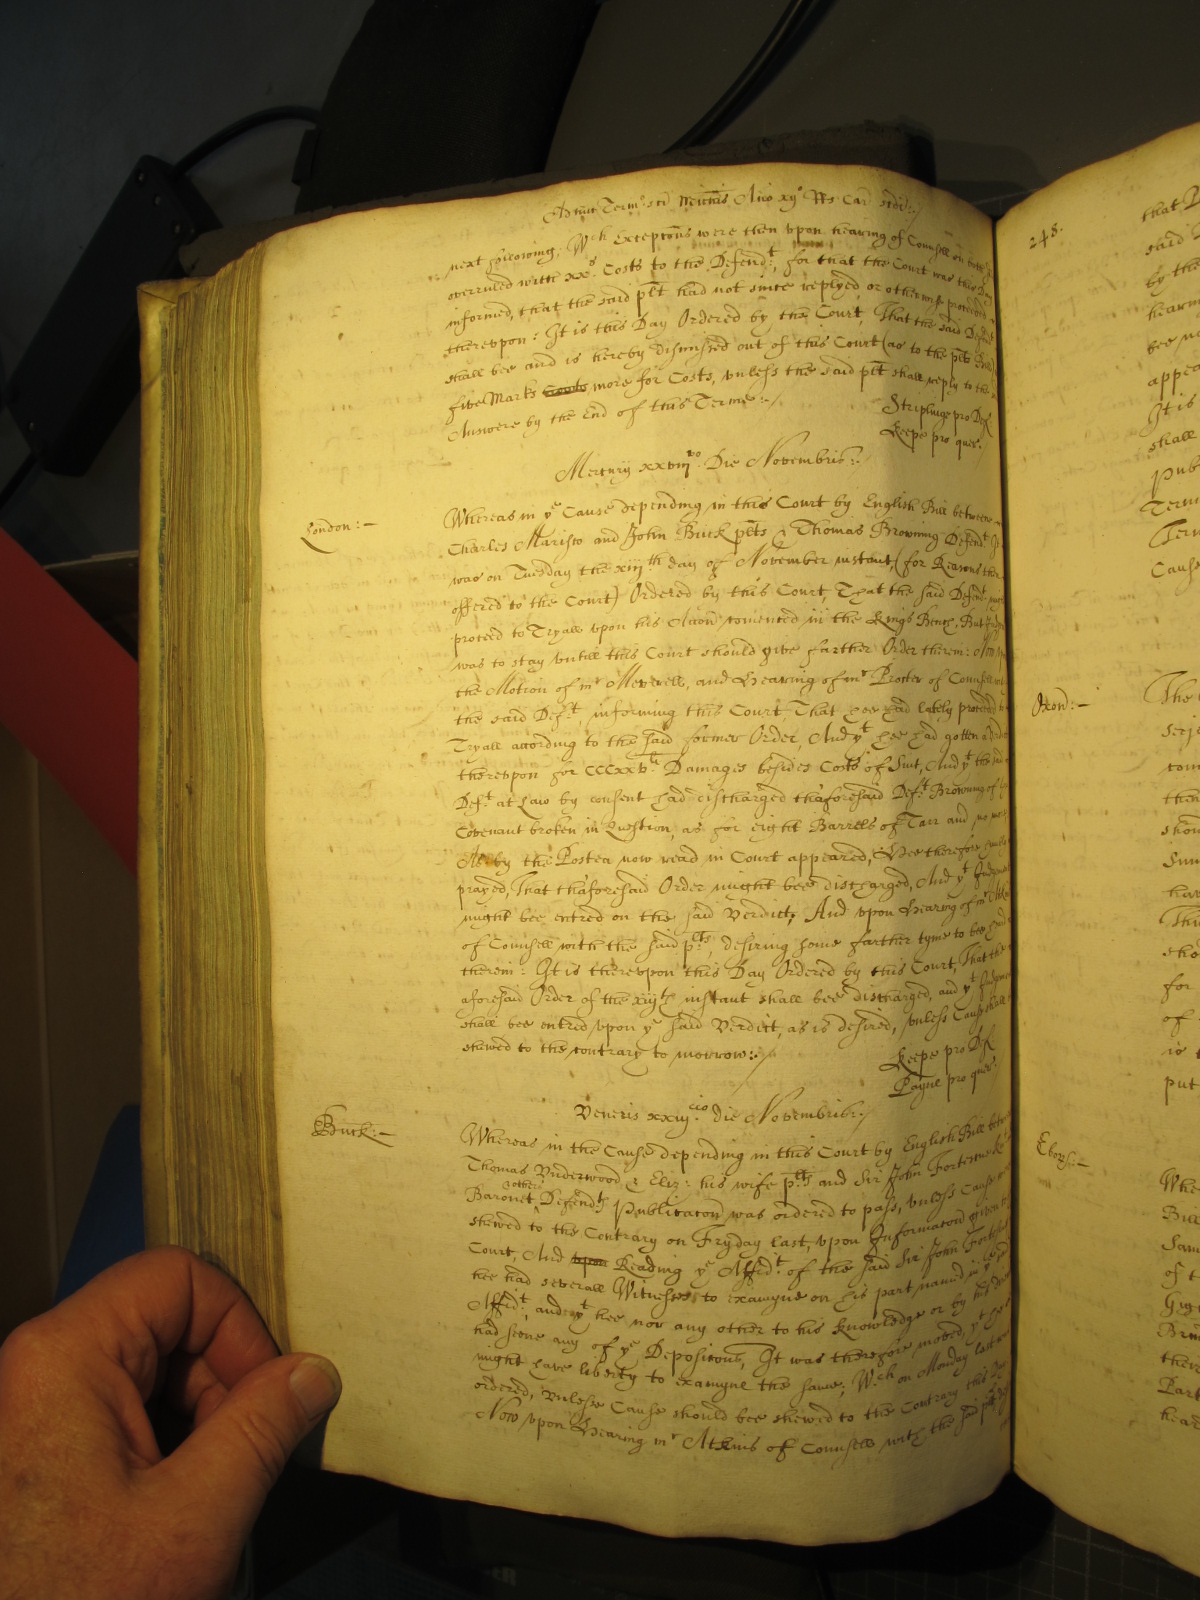 Adhuc Term: sci Michis Anno xij Rs Car scdi:
next following. Wch Exceptons were then vpon hearing of Counsell on
overruled with xxs. Costs to the Defendt, for that the Court was this Day
informed, that the said plt had not since replyed, or otherwise proceeded
therevpon: It is this Day Ordered by this Court, That the said Defendt
shall bee and is hereby dismissed out of this Court (as to the plts Bill)
five Marks Costs more for Costs, vnless the said plt shall reply to the
Answere by the End of this Terme:
Striplinge pro Def.
Keepe pro quer.
Mercurij Die Novembris:
London:
Whereas in ye Cause depending in this Court by English Bill betweene
Charles Marisco and John Buck plts & Thomas Browning Defendt It
was on Tuesday the xiijth day of November instant, (for Reasons then
offered to the Court) Ordered by this Court That the said Defendt
proceed to Tryall vpon his Accon comenced in the Kings Bench, But
was to stay vntill this Court should give farther Order therein: Now
the Motion of mr Meverell, and Hearing of mr Procter of Counsell
the said Deft informing this Court That hee had lately proceeded
Tryall according to the said former Order, And yt hee had gotten a
therevpon for CCCxxvli Damages besides Costs of Suit, And yt the said
Deft at Law by consent had discharged thaforesaid Deft Browning of
Covenant broken in Question, as for Eight Barrells of Tarr and no more
As by the Postea now read in Court appeared, Hee therefore
prayed, That thaforesaid Order might bee discharged, And yt Judgement
might bee entred on the said Verdict; And vpon Hearing of mr
of Counsell with the said plts, desiring some farther tyme to bee
therein: It is therevpon this Day Ordered by this Court, That the
aforesaid Order of the xiijth instant shall bee discharged, and yt Judgement
shall bee entred vpon ye said Verdict, as is desired, vnless Cause shall
shewed to the contrary to morrow:
Keepe pro Def.
Payne pro quer.
Veneris xxiijcio die Novembris:
Buck:
Whereas in the Cause depending in this Court by English Bill betweene
Thomas Vnderwood & Eliz: his wife plts and Sir John Fortescue
Baronet & others Defendts Publicacon was ordered to pass, vnless Cause
shewed to the Contrary on Fryday last, vpon Informacon given
Court, And vpon Reading ye Affidt of the said Sir John Fortescue
hee had severall Witnesses to examyne on his part named in ye said
Affidt, and yt hee nor any other to his knowledge or by his
had seene any of ye Depositons, It was therefore moved, yt hee
might have liberty to examyne the same; Wch on Monday last
ordered, vnless Cause should bee shewed to the Contrary this Day
Now vpon Hearing mr Atkins of Counsell with the said plts
248.
that
said
by the
heari
bee
appea
It is
shall
Pub
Term
Cause
Oxon:
The
serj
com
then
shou
Sum
hav
This
sho
for
of
is
put
Ebor:
Whe
Bill
Sam
of t
ther
Part
hear